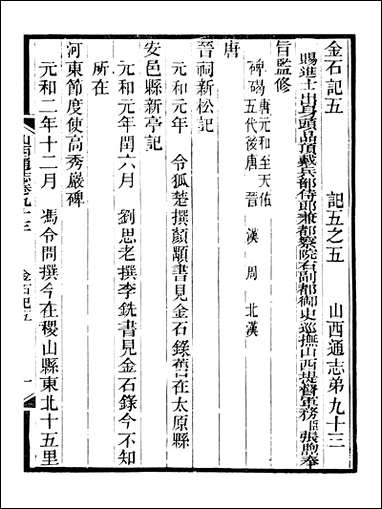 金石記五　記五之五　山西通志弟九十三
賜進士出身頭品頂戴兵部侍郎兼都察院右副都御史巡撫山西提督軍務臣張煦奉
旨監修
碑碣唐元和至天佑
五代後唐　晉　漢　周　北漢
唐
晉祠新松記
元和元年　令狐楚撰顏顒書見金石錄舊在太原縣
安邑縣新亭記
元和元年閏六月　劉思老撰李銑書見金石錄今不知
所在
河東節度使高秀巖碑
元和二年十二月　馮令問撰今在稷山縣東北十五里
山西通志卷九十三　金石記五　一